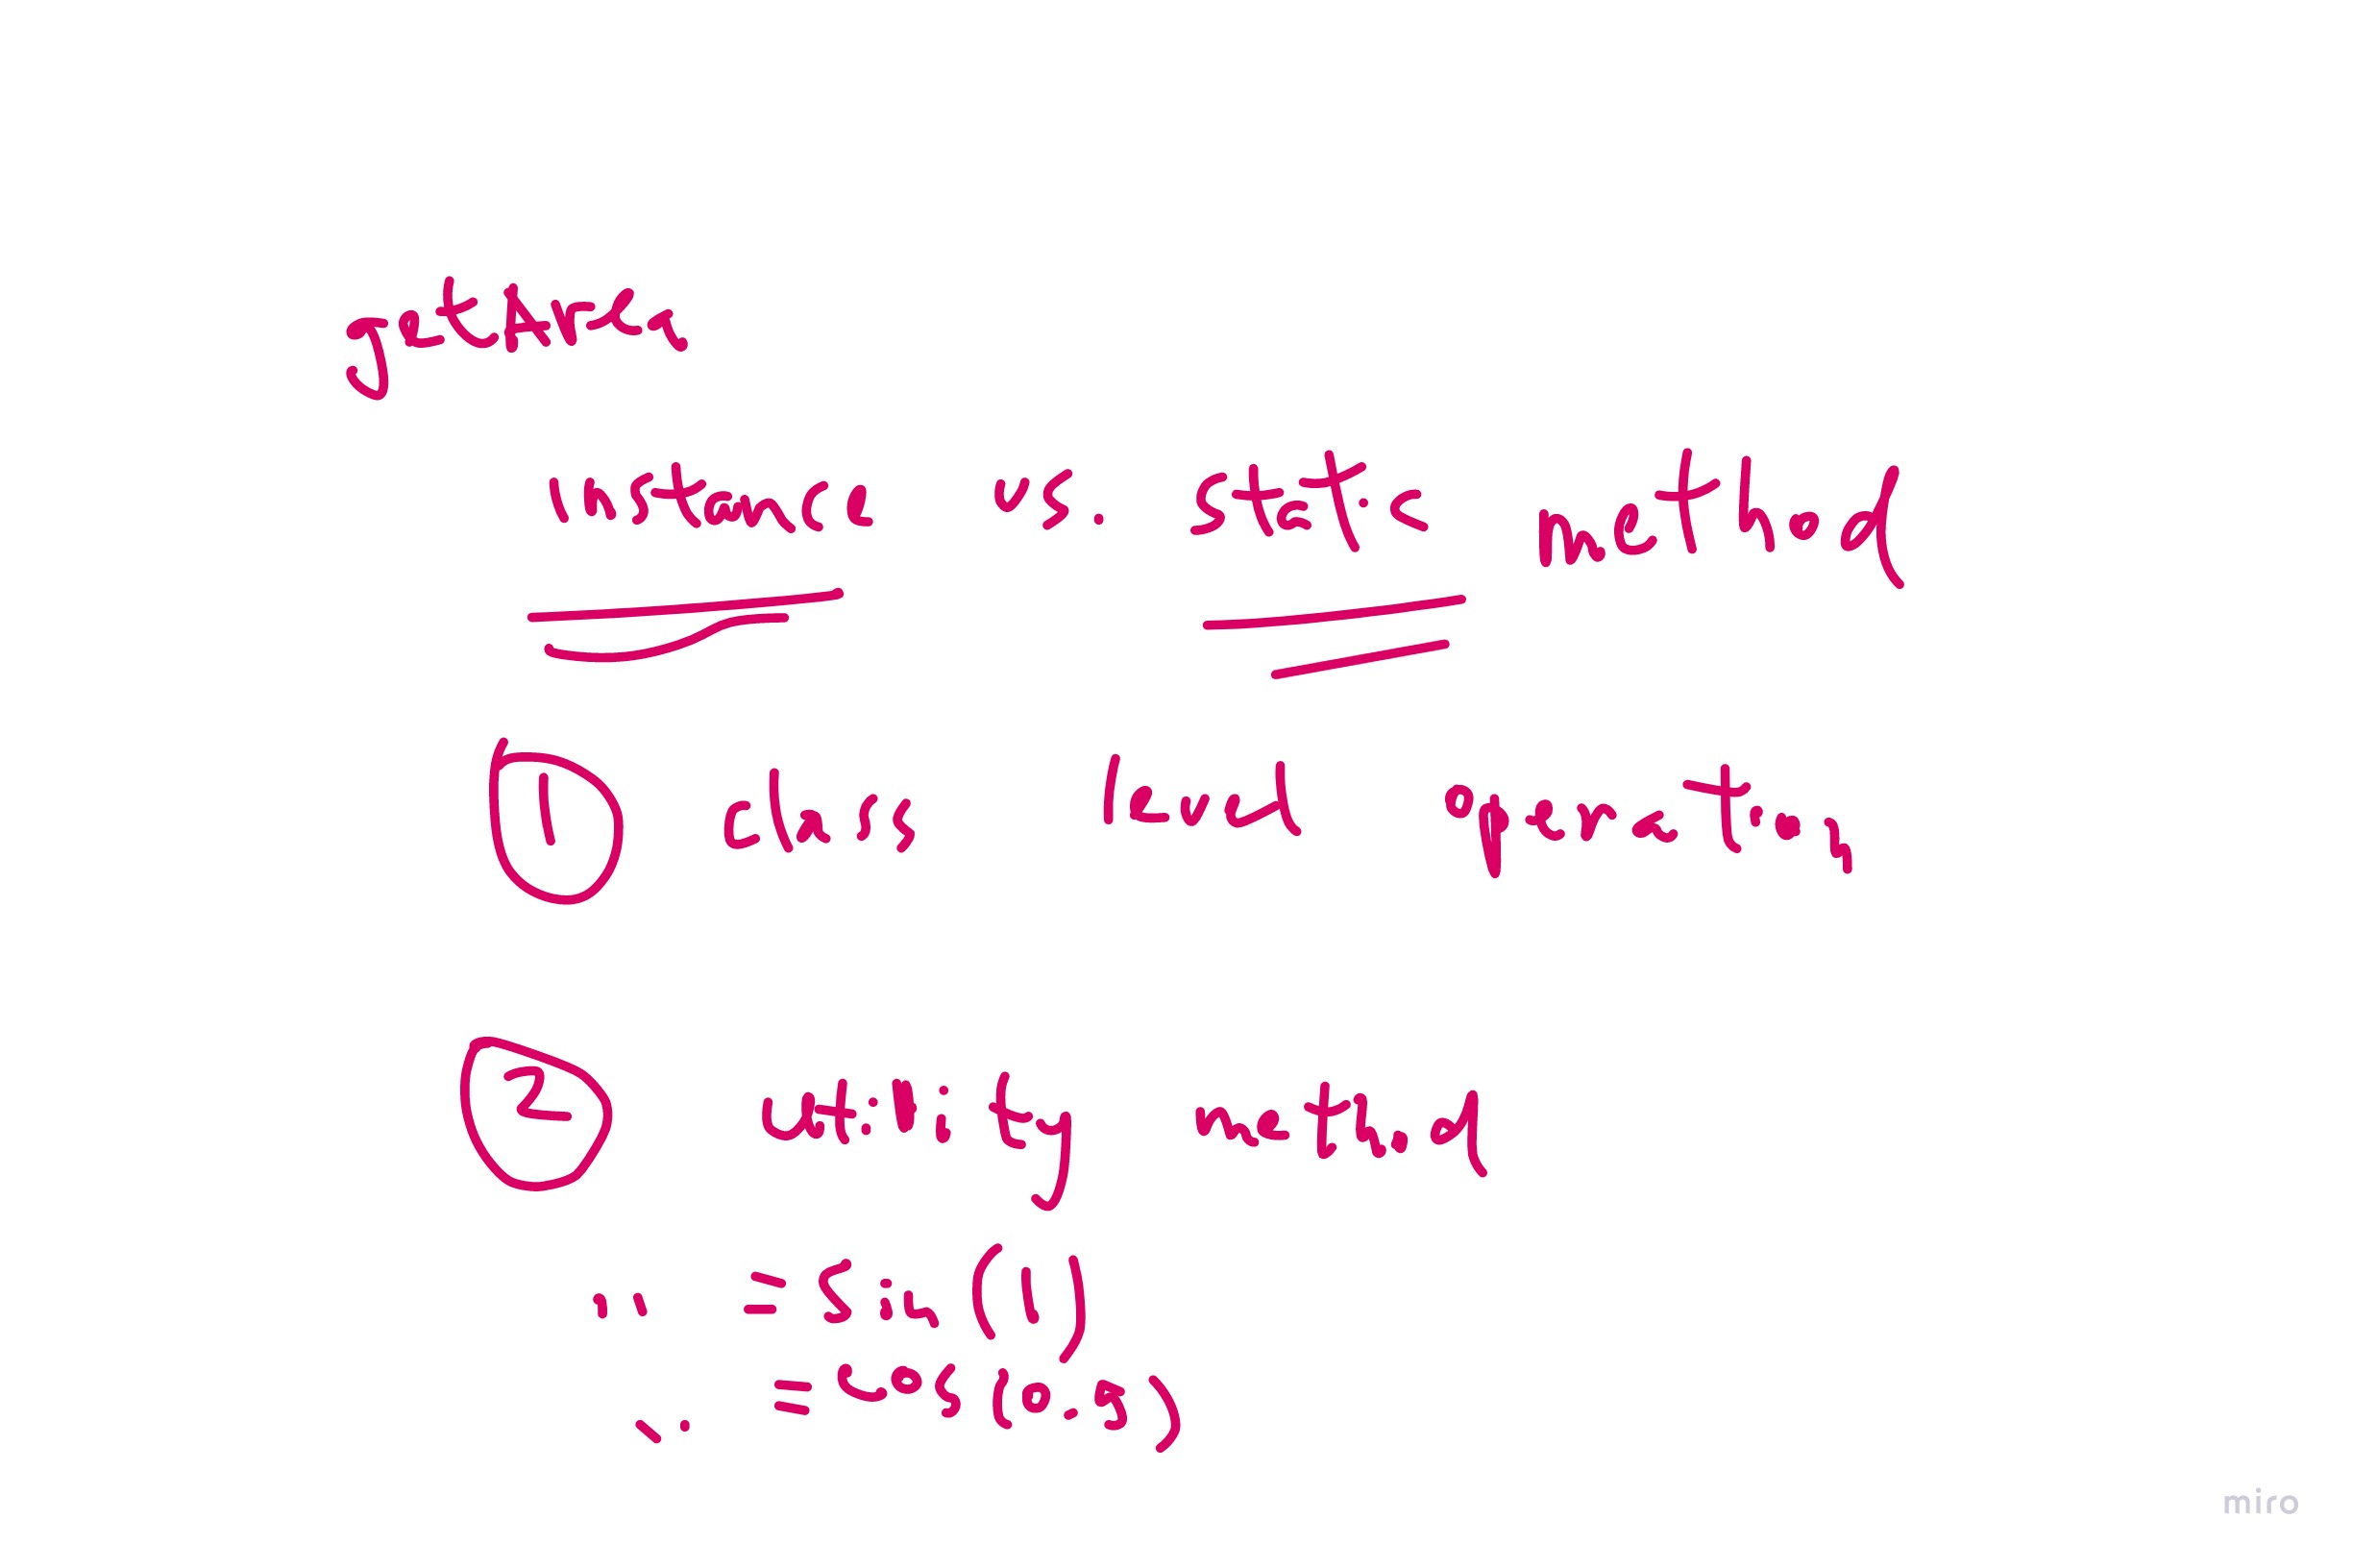 getArea
instance vs. static method
1 class level operation
2 utility method
.. = Sin(1)
.. = cos(0.5)
miro